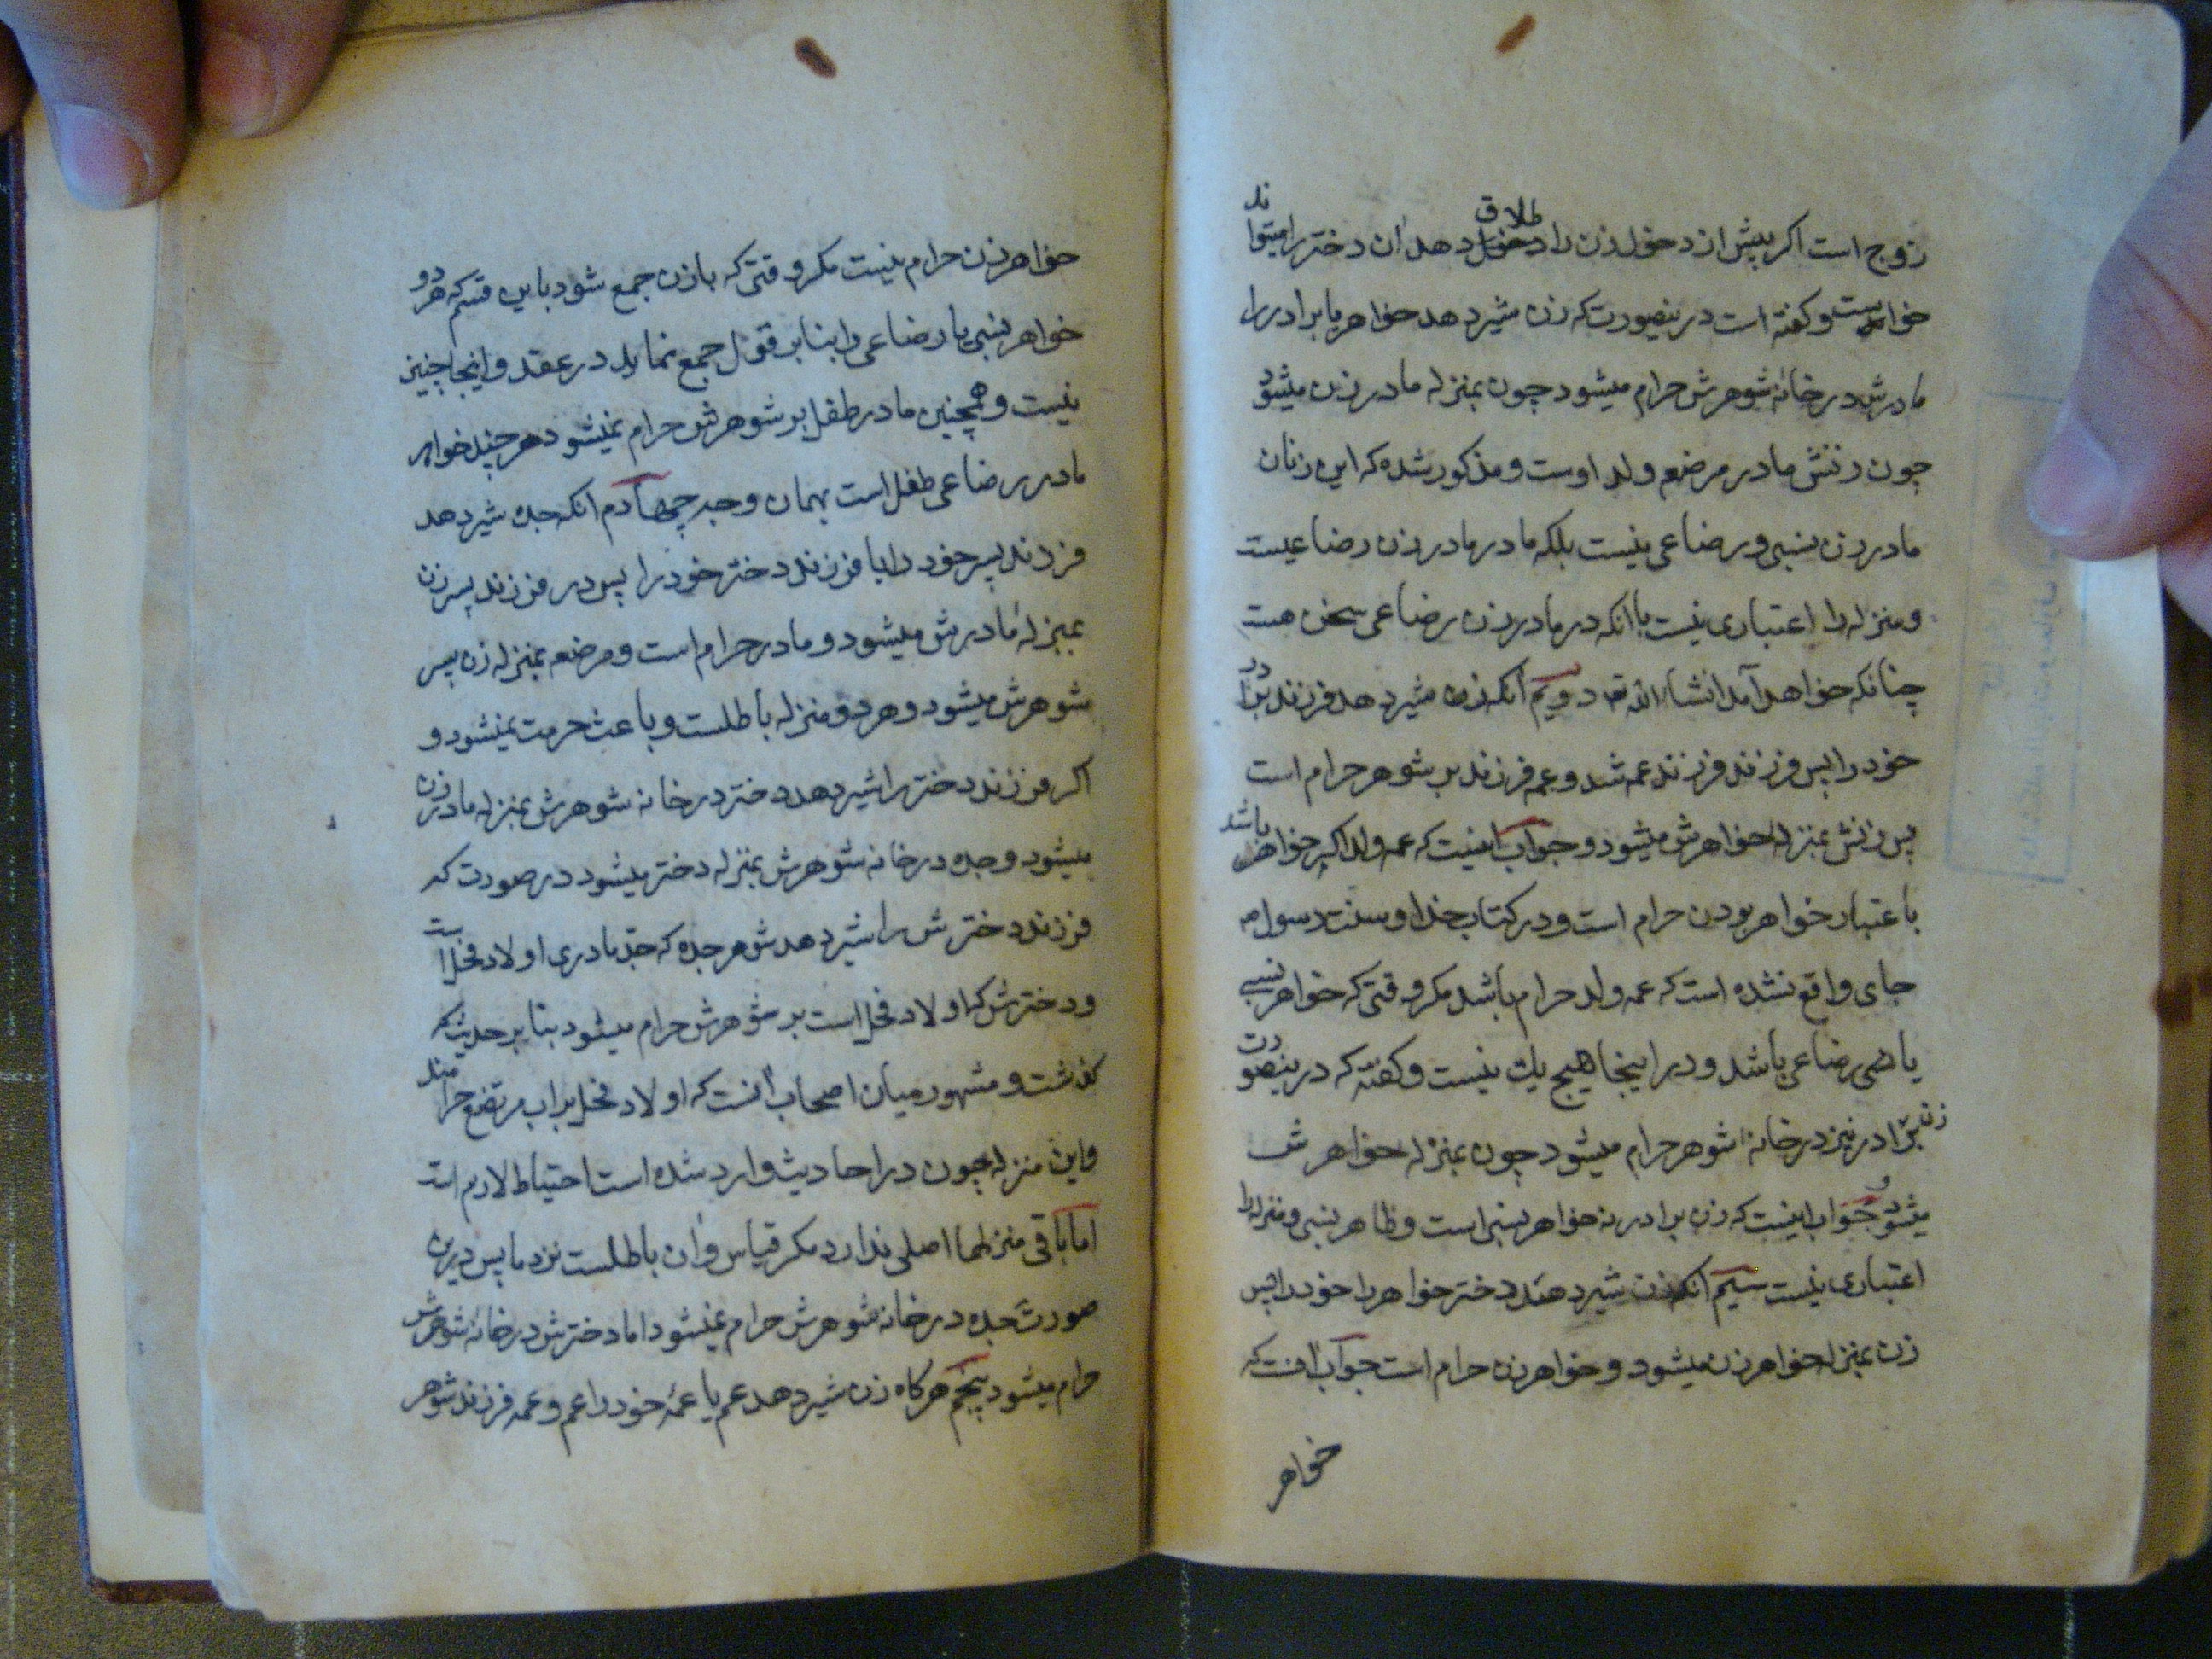 زوج است اکر پیش از دخول زن را طلاق دهد ان دختر را میتواند
خواست و کفته است درینصورت که زن شیر دهد خواهر یا برادر را
مادرش در خانه شوهرش حرام میشود چون بمنزله مادر زن میشود
چون زنش مادر مرضع ولد اوست و مذکور شده که این زنان
مادر زن نسبی و رضاعی نیست بلکه مادر مادر زن رضاعیست
و منزله را اعتباری نیست با انکه در مادر زن رضاعی سخن هست
چنانکه خواهد آمد انشاء الله تعد دویم انکه زن شیر دهد فرزند برادر
خود را پس فرزند فرزند عمه شد و عمه فرزند بر شوهر حرام است
پس زنش بمنزله خواهرش میشود و جواب اینست که عمه ولد اکر خواهر باشد
باعتبار خواهر بودن حرام است و در کتاب خدا و سنت رسول ص
جای واقع نشده است که عمه ولد حرام باشد مکر وقتی که خواهر نسبی
یا رضاعی باشد و در اینجا هیچ یك نیست و کفته که درینصورت
زن برادر نیز در خانه شوهر حرام میشود چون بمنزله خواهرش
میشود و جواب اینست که زن برادر نه خواهر نسبی است و ظاهر نسبی و منزله را
اعتباری نیست سیم انکه زن شیر دهد دختر خواهر را خود را پس
زن بمنزله خواهر زن میشود و خواهر زن حرام است جواب انست که
خواهر
خواهر زن حرام نیست مکر وقتی که با زن جمع شود باین قسم که هر دو
خواهر نسبی یا رضاعی را بنا بر قول جمع نماید در عقد و اینجا چنین
نیست و همچنین مادر طفل بر شوهرش حرام نمیشود هر چند خواهر
مادر رضاعی طفل است بهمان وجه چهارم انکه جده شیر دهد
فرزند پسر خود را یا فرزند دختر خود را پس در فرزند پسر زن
بمنزله مادرش میشود و مادر حرام است و مرضعه بمنزله زن پسر
شوهرش میشود و هر دو منزله باطلست و باعث حرمت نمیشود و
اکر فرزند دختر را شیر دهد دختر در خانه شوهرش بمنزله مادر زن
میشود و جده در خانه شوهرش بمنزله دختر میشود در صورت که
فرزند دخترش را شیر دهد شوهر جده که جد مادری اولاد فحل است
و دخترش که اولاد فحل است بر شوهرش حرام میشود بنا بر حدیث که
کذشت و مشهور میان اصحاب انست که اولاد فحل بر اب مرتضع حرامند
و این منزله چون در احادیث وارد شده است احتیاط لازم است
اما باقی منزلها اصلی ندارد مکر قیاس و ان باطلست نزد ما پس درین
صورت جده در خانه شوهرش حرام نمیشود اما دخترش در خانه شوهرش
حرام میشود پنجم هرکاه زن شیر دهد عم یا عمۀ خود را عم و عمه فرزند شوهر